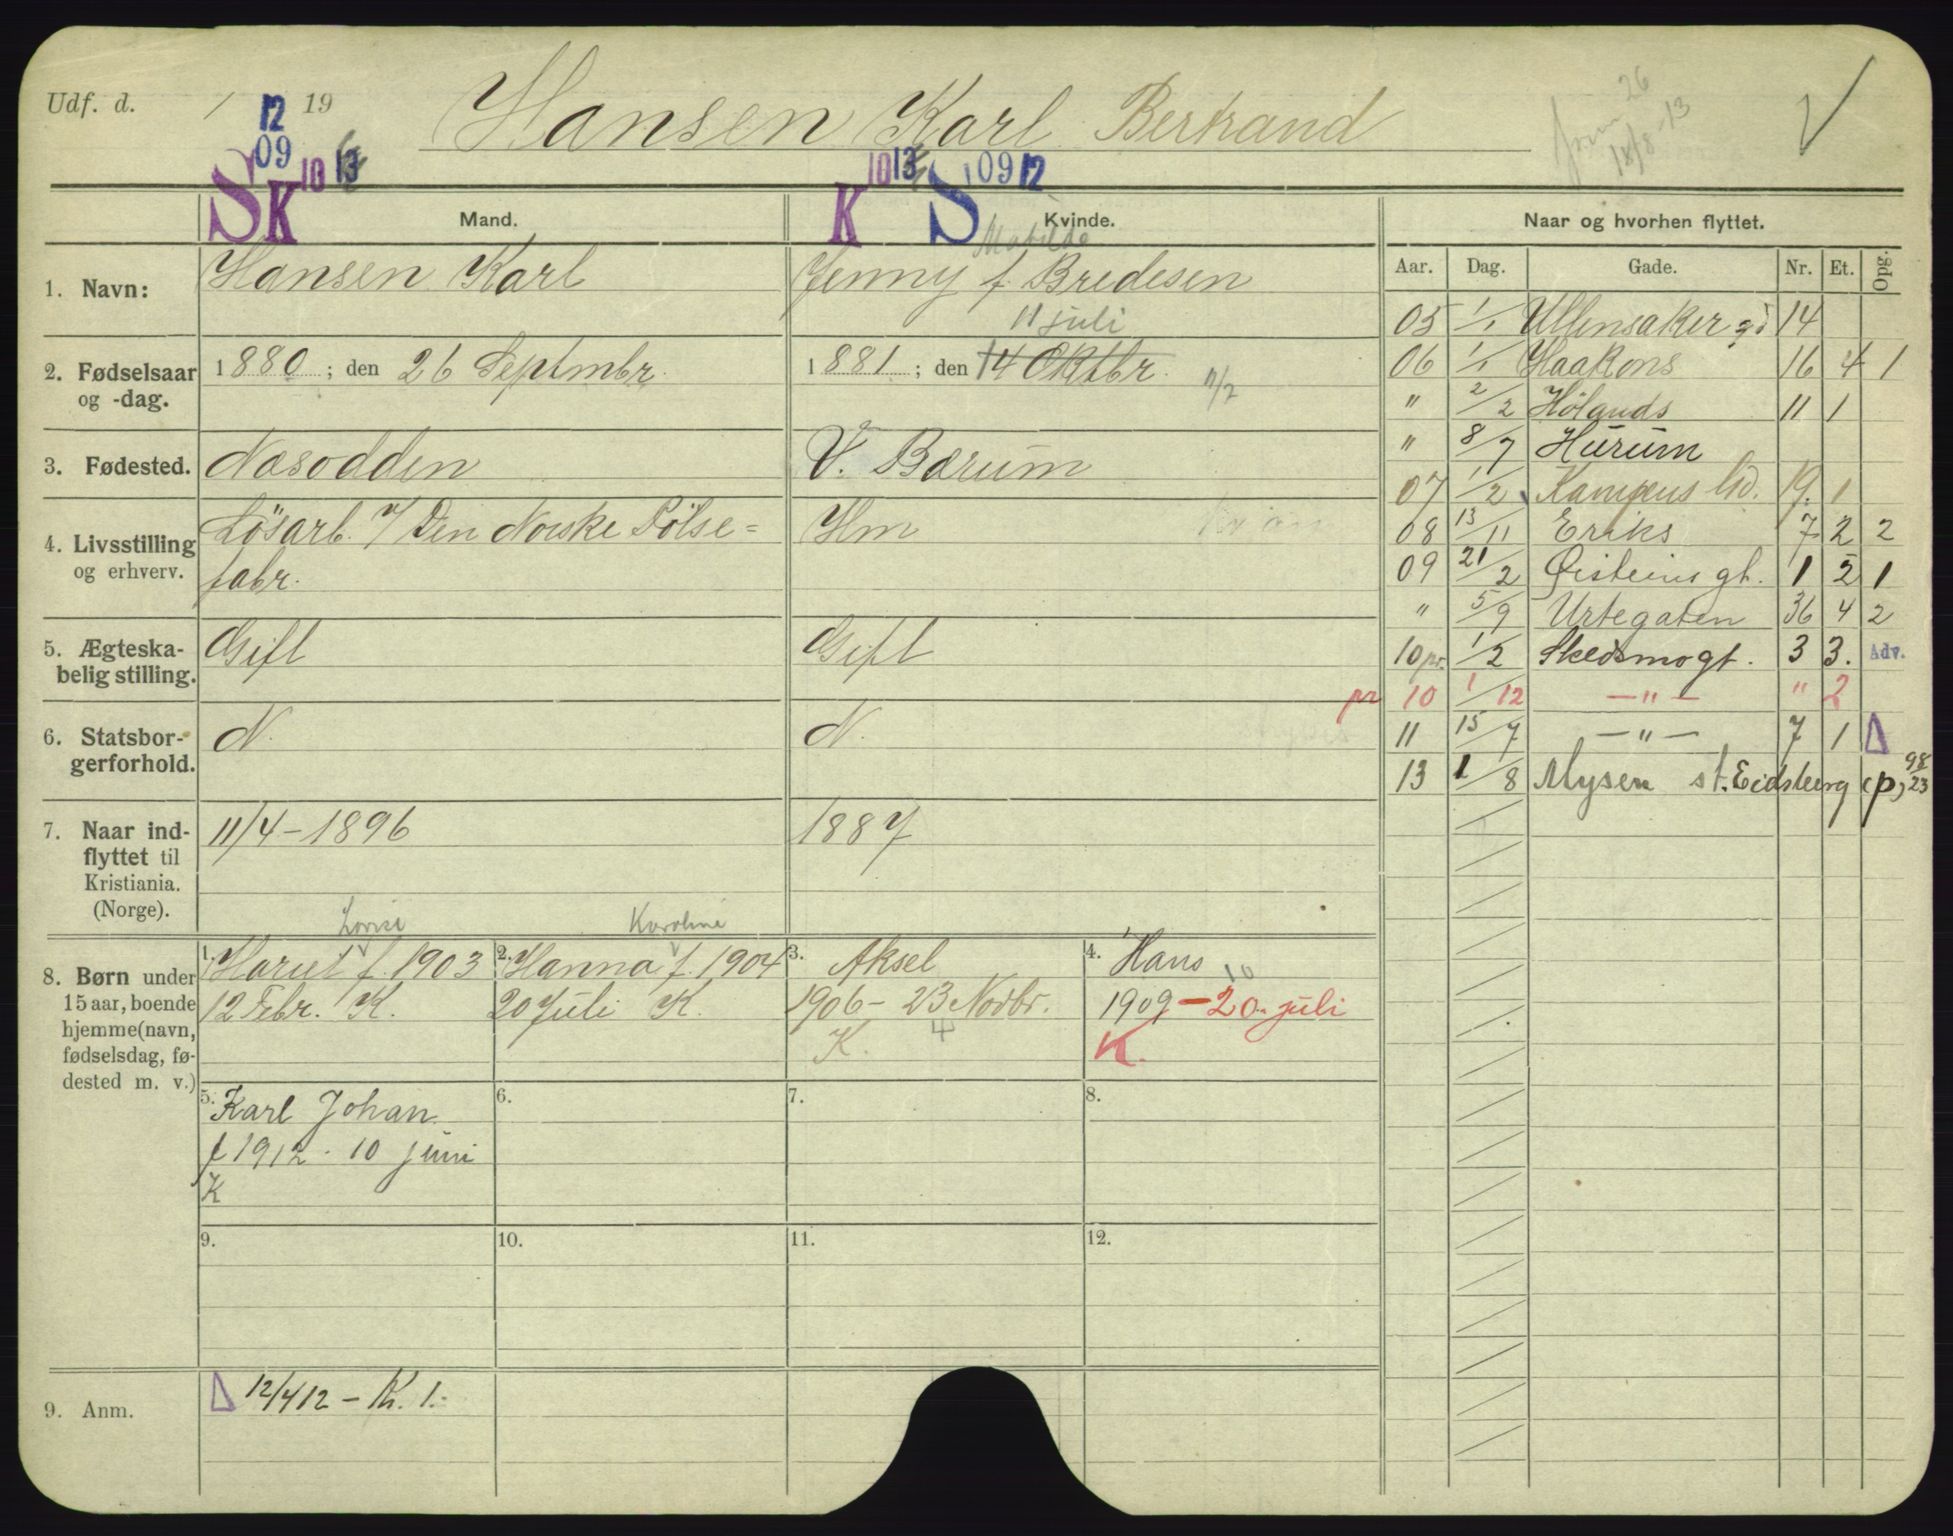 Udf. d. / 12 19
Hansen Karl Bertrand
26
18/8-13
S 09 K 10 13
K 10 13 S 09 12
Mand.
Kvinde.
Naar og hvorhen flyttet.
Matilde
1. Navn:
Hansen Karl
Jenny f. Bredesen
11 juli
2. Fødselsaar og -dag.
1880; den 26 Septmbr.
1881; den 14 Oktbr. 11/7
3. Fødested.
Næsodden
V. Bærum
4. Livsstilling og erhverv.
Løsarb. v/ Den Norske Pølse=
fabr.
Hm
5. Ægteska-
belig stilling.
Gift
Gift
6. Statsbor-
gerforhold.
N.
N.
7. Naar ind-
flyttet til
Kristiania.
(Norge).
11/4-1896
1887
8. Børn under
15 aar, boende
hjemme (navn,
fødselsdag, fø-
dested m. v.)
Lovise
1. Hariet f. 1903
12 Febr. K.
Karoline
2. Hanna f. 1904
20 Juli K.
3. Aksel
1906 - 23 Novbr.
K. 4
4. Hans
10
1909 - 20. juli
K.
5. Karl Johan
f 1912 - 10 juni
K
6.
7.
8.
9.
10.
11.
12.
9. Anm.
Δ 12/4 12 - K. 1.-
Aar. Dag. Gade. Nr. Et. Opg.
05 1/1 Ullensaker gd 14
06 1/1 Haakons 16 4 1
" 2/2 Hølands 11 1
" 8/7 Hurum
07 1/2 Kampens 19. 1
08 13/11 Eriks 7 2 2
09 21/2 Øisteins gt. 1 2 1
" 5/9 Urtegaten 36 4 2
10 pr. 1/2 Skedsmogt. 3 3. Adv.
pr 10 1/12 -"- " 2
11 15/7 -"- 7 1 Δ
13 1/8 Mysen st. Eidsberg (p) 98/23